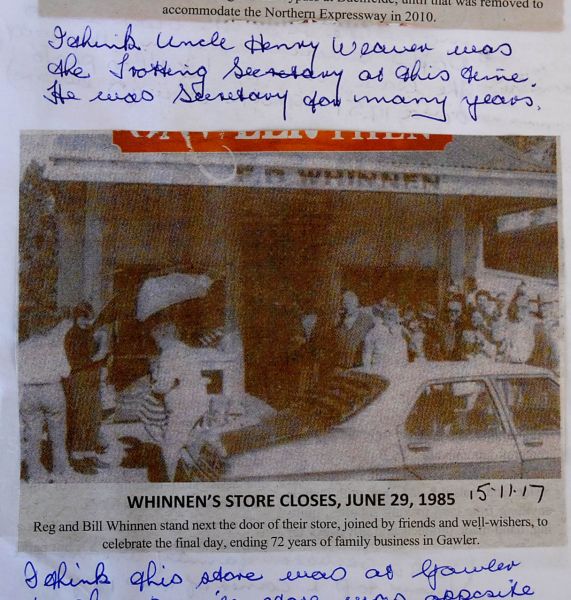 that was removed to
accommodate the Northern Expressway in 2010.
I think Uncle Henry Weaver was
the Trotting Secretary at this time.
He was Secretary for many years.
WHINNEN
WHINNEN'S STORE CLOSES, JUNE 29, 1985 15-11-17
Reg and Bill Whinnen stand next the door of their store, joined by friends and well-wishers, to
celebrate the final day, ending 72 years of family business in Gawler.
I think this store was at Gawler
store was opposite